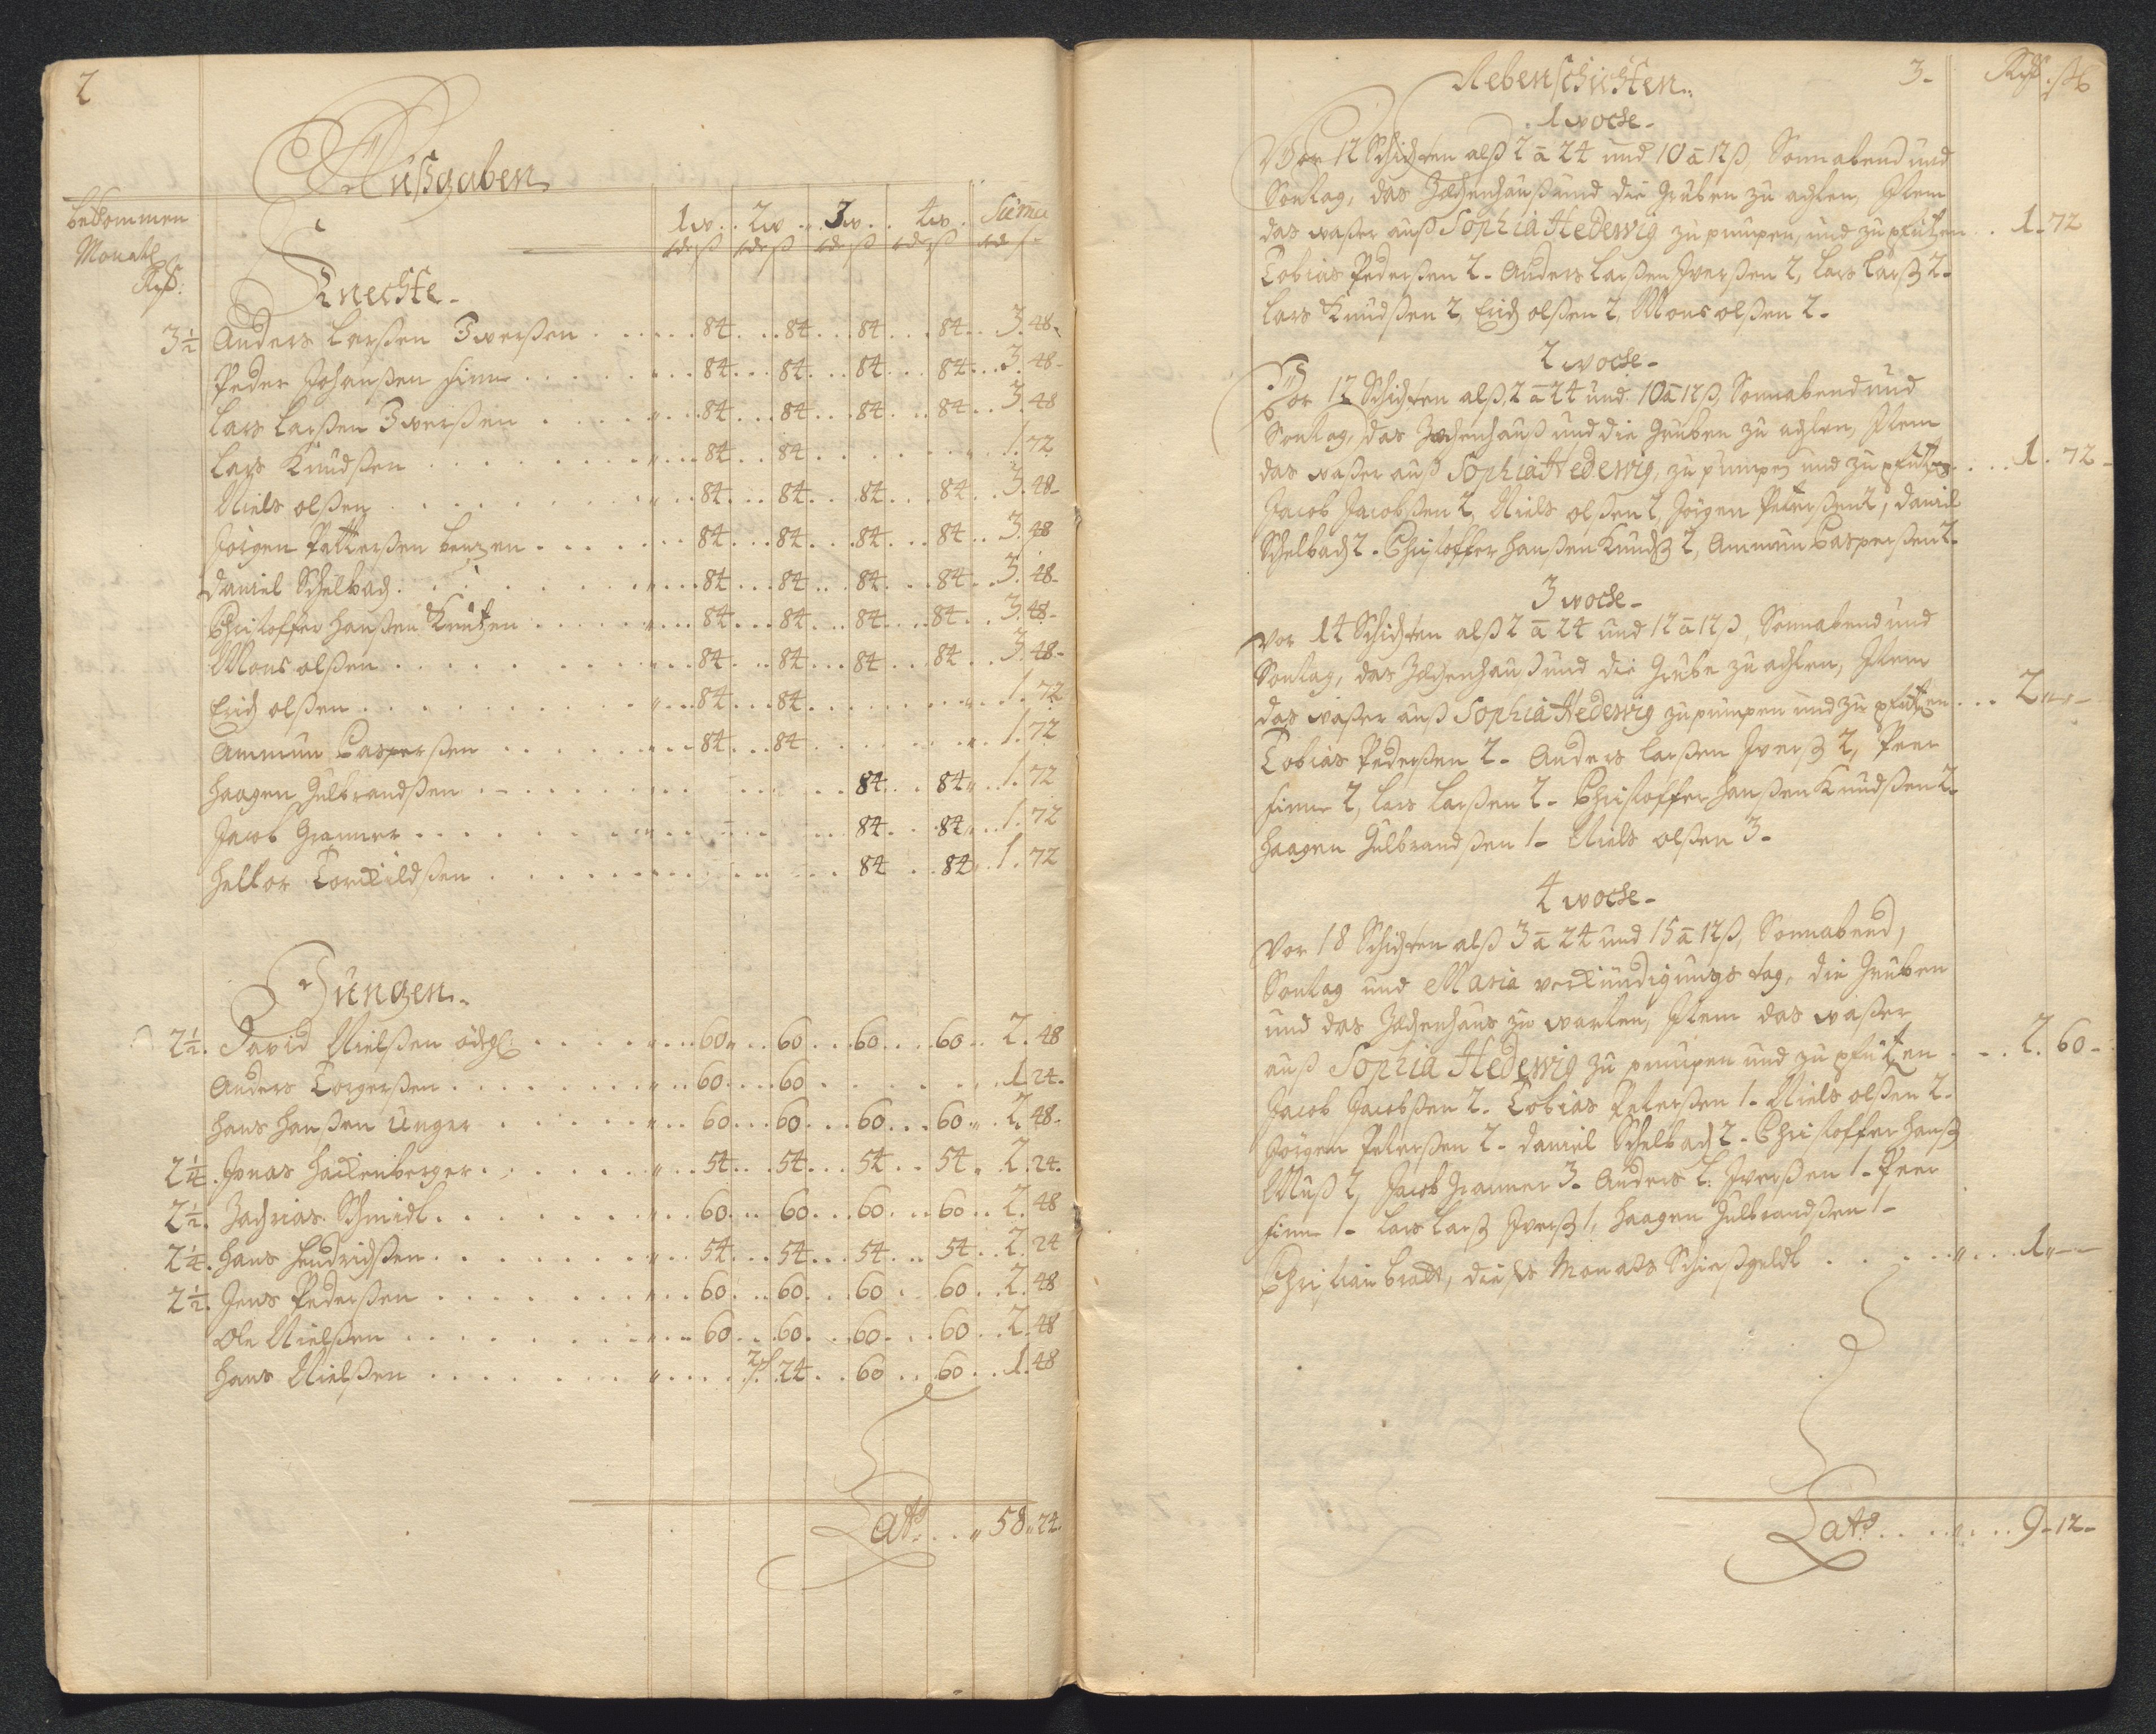 2
Außgaben
bekommen
Monatl
Rdß:
1w. 2w. 3w. 4w. Suma
rdß rdß rdß rdß rdß
Knechte.
3½ Anders Larßen Iwerßen . . . 84 . . 84 . . 84 . . 84 . . 3. 48.
Peder Johanßen Finne . . . 84 . . 84 . . 84 . . 84 . . 3. 48.
Lars Larßen Iwerßen . . . 84 . . 84 . . 84 . . 84 . . 3. 48
Lars Knudßen . . . 84 . . 84 . . . 1. 72
Niels olßen . . . 84 . . 84 . . 84 . . 84 . . 3. 48.
Jörgen Pätterßen . . . 84 . . 84 . . 84 . . 84 . . 3. 48
Daniel Schelbach . . . 84 . . 84 . . 84 . . 84 . . 3. 48.
Christoffer Hanßen Knutzen . . . 84 . . 84 . . 84 . . 84 . . 3. 48.
Mons olßen . . . 84 . . 84 . . 84 . . 84 . . 3. 48.
Erich olßen . . . 84 . . 84 . . . 1. 72
Ammun Casperßen . . . 84 . . 84 . . . 1. 72
Haagen Gulbrandßen . . . 84 . . 84 . . 1. 72
Jacob Gramer . . . 84 . . 84 . . 1. 72
Helkor Torkildßen . . . 84 . . 84 . . 1. 72
Jungen.
2½. David Nielßen . . . 60 . . 60 . . 60 . . 60 . . 2. 48
Anders Torgerßen . . . 60 . . 60 . . . 1. 24.
Hans Hanßen Unger . . . 60 . . 60 . . 60 . . 60 . . 2. 48.
2¼. Jonas Hackenberger . . . 54 . . 54 . . 54 . . 54 . . 2. 24.
2½. Zachrias Schmidt . . . 60 . . 60 . . 60 . . 60 . . 2. 48
2¼. Hans Hendrichßen . . . 54 . . 54 . . 54 . . 54 . . 2. 24
2½. Jens Pederßen . . . 60 . . 60 . . 60 . . 60 . . 2. 48
Ole Nielßen . . . 60 . . 60 . . 60 . . 60 . . 2. 48
Hans Nielßen . . . 24 . . 60 . . 60 . . 1. 48
Lats . . . 58. 24.
Nebenschichten.
3-
Rdß. ß
1 woche-
Vor 12 Schichten alß 2 a 24 und 10 a 12 ß, Sonnabend und
Sontag, das Zechenhauß und die Gruben zu achten, Item
das waßer auß Sophia Hedewig zu pumpen, und zu pfützen . . 1. 72
Tobias Pederßen 2. Anders Larßen Iverßen 2, Lars Larß 2.
Lars Knudßen 2, Erich olßen 2, Mons olßen 2.
2 woche-
Vor 12 Schichten alß 2 a 24 und 10 a 12 ß, Sonnabend und
Sontag, das Zechenhauß und die Gruben zu achten, Item
das waßer auß Sophia Hedewig, zu pumpen und zu pfützen . . . 1. 72-
Jacob Jacobßen 2, Niels olßen 2, Jörgen Peterßen 2, Daniel
Schelbach 2. Christoffer Hanßen Knudß 2, Ammun Casperßen 2.
3 woche-
Vor 14 Schichten alß 2 a 24 und 12 a 12 ß, Sonnabend und
Sontag, das Zechenhauß und die Grube zu achten, Item
das waßer auß Sophia Hedewig zu pumpen und zu pfützen . . . 2 " -
Tobias Pederßen 2. Anders Larßen Iverß 2, Peer
Finne 2, Lars Larßen 2. Christoffer Hanßen Knudßen 2.
Haagen Gulbrandßen 1- Niels olßen 3-
4 woche-
Vor 18 Schichten alß 3 a 24 und 15 a 12 ß, Sonnabend,
Sontag und Maria verkündigungs tag, die Gruben
und das Zechenhaus zu warten, Item das waßer
auß Sophia Hedewig zu pumpen und zu pfützen . . . 2. 60-
Jacob Jacobßen 2. Tobias Peterßen 1- Niels olßen 2.
Jörgen Peterßen 2- Daniel Schelbach 2. Christoffer Hanß
Muß 2, Jacob Gramer 3. Anders L: Iverßen 1- Peer
Finne 1- Lars Larß Iverß 1, Haagen Gulbrandßen 1-
Christian bradt, dieses Monats Schießgeldt . . . 1 " -
Lats . . . 9- 12-